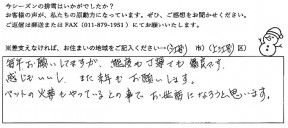 今シーズンの排雪はいかがでしたか？
お客様の声が、私たちの原動力になっています。ぜひ、ご感想をお聞かせください。
ご返信は郵送またはFAX（011-879-1951）にてお願いいたします。
※差支えなければ、お住まいの地域をご記入ください…（　　市）（　　区）
毎年お願いしてますが、速度も丁寧でも最高です。
感じもいいし、また来年もお願いします。
ペットの火葬もやっているとの事で、お世話になろうと思います。